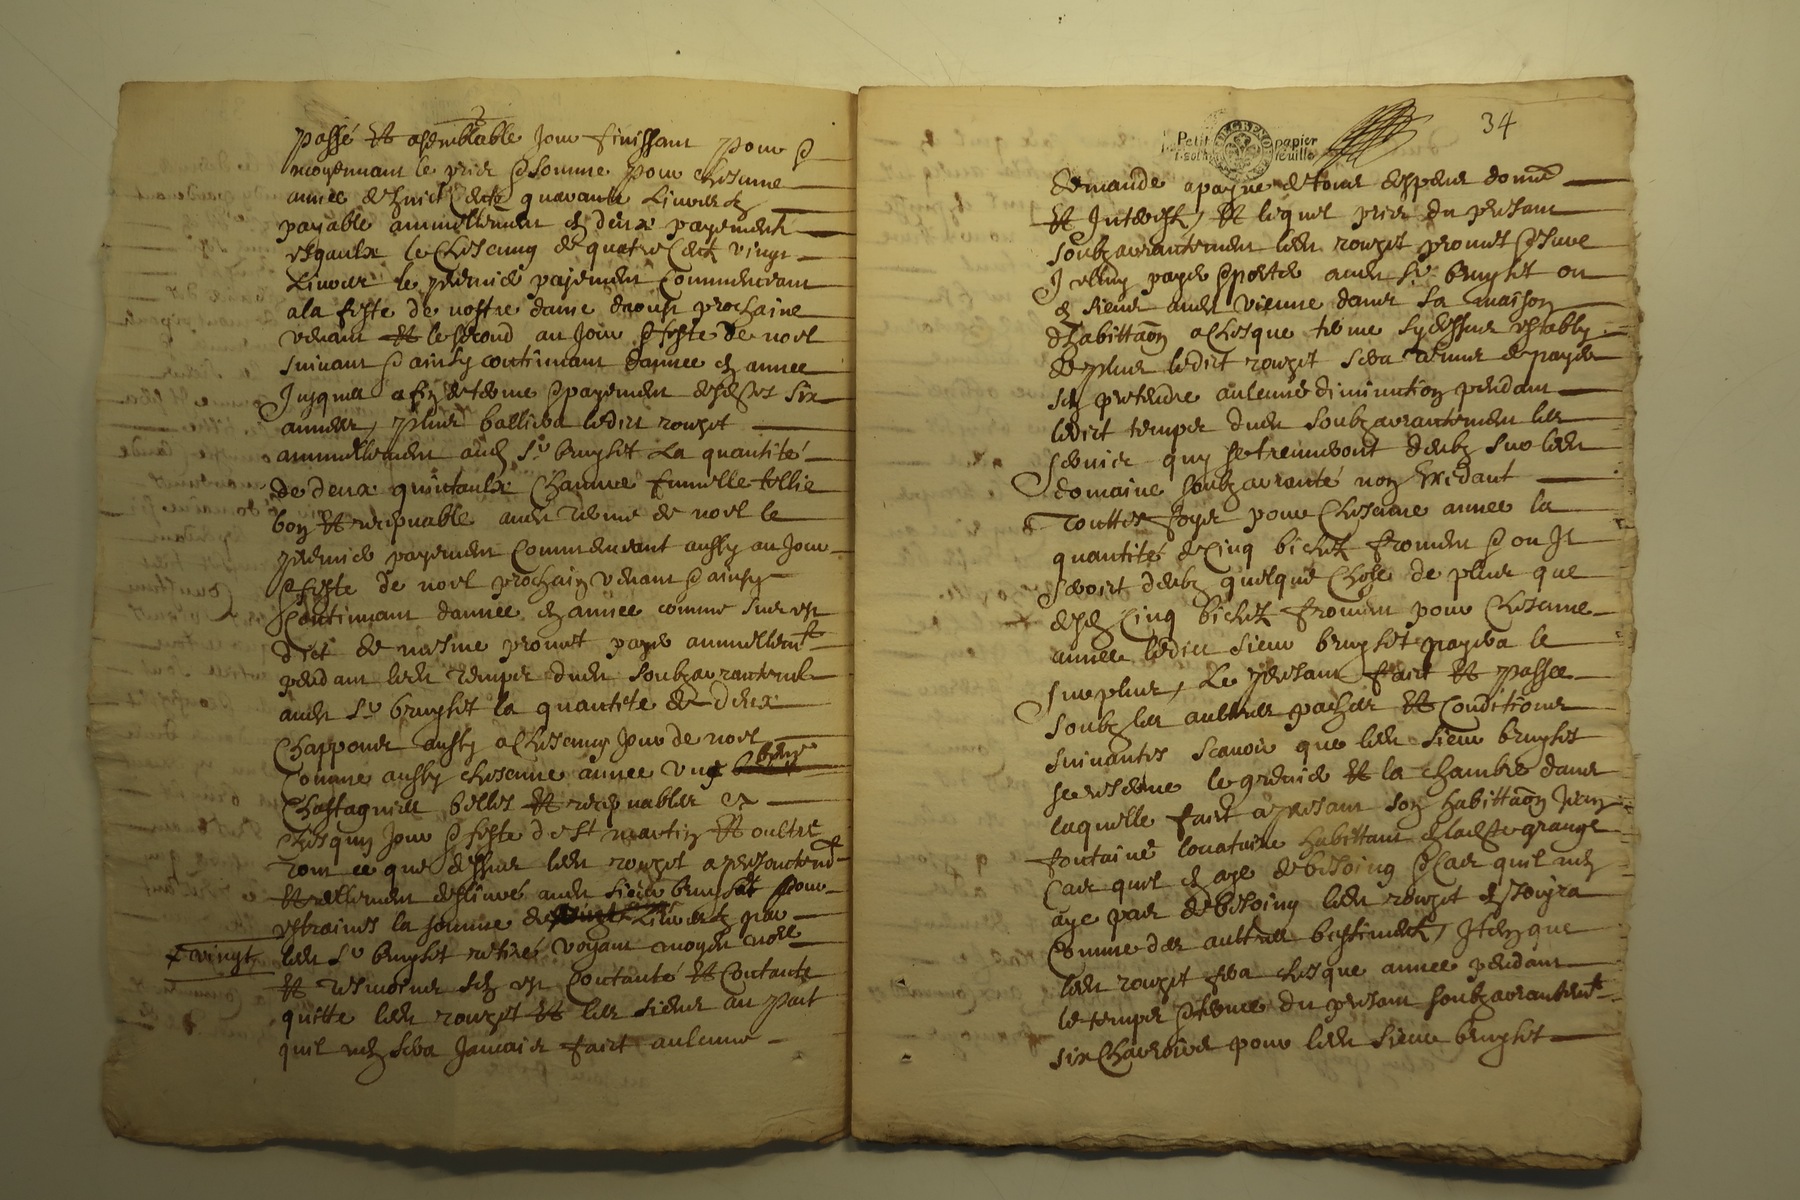 passé et asemblable jour finissant pour &
moyennant le prix & somme pour chescune
année de huict cents quarante livres
payable annuellement en deux payements
esgaulx le chescung de quatre cents vingt
livres le premier payement commencant
a la feste de nostre dame daoust prochaine
venant et le second au jour & feste de noel
suivant & ainsy continuant dannee en annee
jusques a fin de terme & payement desdes six
annees, plus balliera ledict rouget
annuellement aud sr bruyset la quantité
de deux quintaulx chanvre fumelle
bon et recepuable aud terme de noel le
premier payement commencant aussy au jour
& feste de noel prochain venant & ainsy
continuant dannée en année comme sus est
dict de mesme promet payer annuellemt
pendant led temps dud soubzarrantement
aud sr bruyset la quantité de deux
chappons aussy a chescung jour de noel
comme aussy chescune année ung
chastagnes belles et recepuables
chesquy jour & feste de st martin et oultre
tout ce que dessus led rouget a presentemt
et rellement deslivré aud sieur bruyset pour
estraines la somme de livres par
vingt
led sr bruyset retiré voyant moyd nore
et tesmoins sen est contanté et contante
quitte led rouget et les siens au pact
quil nen sera jamais faict aulcune
34
Petit papier
1. sol feuille
GRENOBLE
demande a payne de tous despens domes
et interests, et lequel prix du present
soubzarrantement led rouget promet & sera
tenu payer & porter aud sr bruyset ou
es siens aud vienne dans sa maison
dhabittaon a chesque terme sydessus estably
de plus ledict rouget sera tenu de payer
sen pretendre aulcune diminution pendant
ledict temps dud soubzarrantement les
servis quy se treuveront deubz sur led
domaine soubzarranté non exedant
touttes foys pour chescune annee la
quantité de cinq bichetz froment & ou il
seroit deubz quelque chose de plus que
desd cinq bichetz froment pour chescune
annee ledict sieur bruyset payera le
surplus, le present faict et passee
soubz les aultres paches et conditions
suivantes scavoir que led sieur bruyset
se reserve le grenier et la chambre dans
laquelle faict a present son habittaon jean
fontaine locataire habittant de lade grange
cas quil en aye de besoing & cas quil nen
aye pas de besoing led rouget en jouyra
comme des aultres bastiments, item que
led rouget fera chesque annee pendant
le temps & terme du present soubzarrantemt
six charrois pour led sieur bruyset